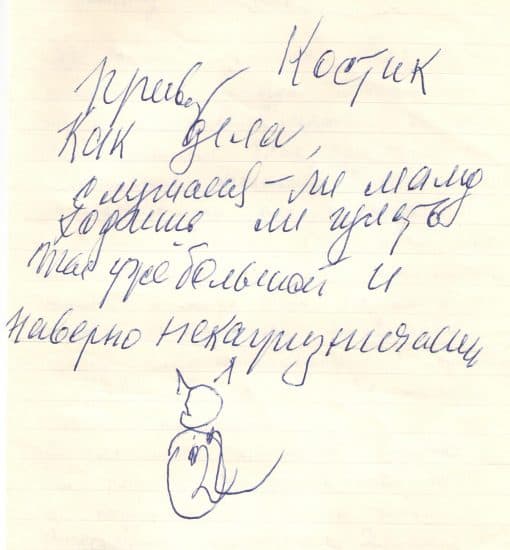 Костик
привет
Как дела,
слушаешь-ли маму
ходишь ли гулять
ты уже большой и
наверно некапризничаешь